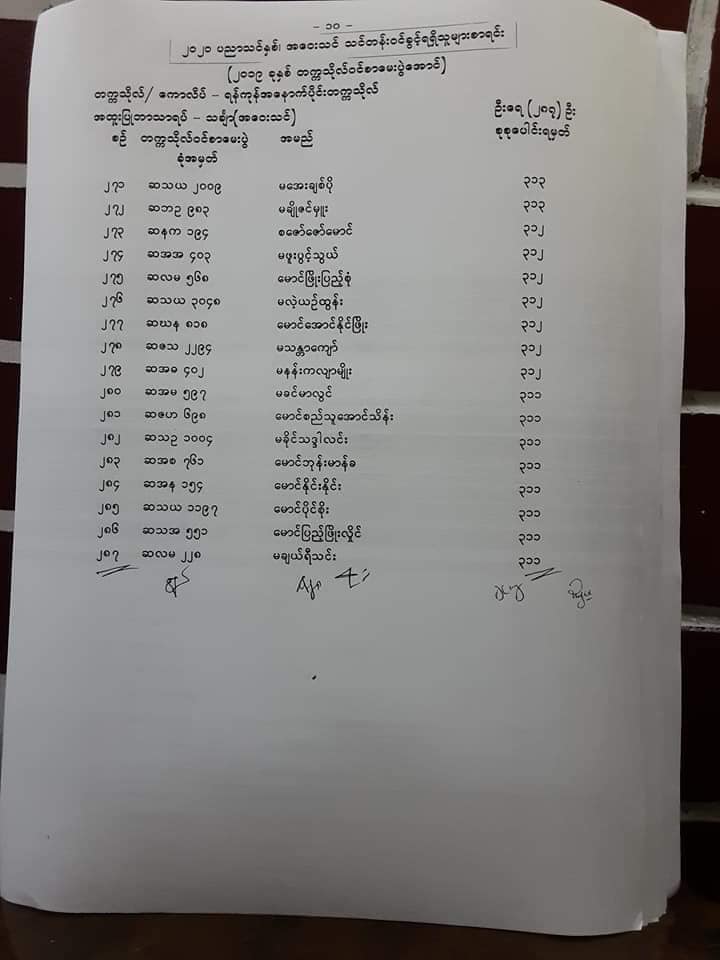 - ၁၀ -
၂၀၂၀ ပညာသင်နှစ်၊ အဝေးသင် သင်တန်းဝင်ခွင့်ရရှိသူများစာရင်း
(၂၀၁၉ ခုနှစ် တက္ကသိုလ်ဝင်စာမေးပွဲအောင်)
တက္ကသိုလ်/ ကောလိပ် - ရန်ကုန်အနောက်ပိုင်းတက္ကသိုလ်
အထူးပြုဘာသာရပ် - သင်္ချာ(အဝေးသင်) ဦးရေ (၂၈၇) ဦး
စဉ် တက္ကသိုလ်ဝင်စာမေးပွဲ အမည် စုစုပေါင်းရမှတ်
ခုံအမှတ်
၂၇၁ ဆသယ ၂၀၀၉ မအေးချစ်ပို ၃၁၃
၂၇၂ ဆဘဥ ၉၈၃ မချိုဇင်မှူး ၃၁၃
၂၇၃ ဆနက ၁၉၄ စဇော်ဇော်မောင် ၃၁၂
၂၇၄ ဆအအ ၄၀၃ မဖူးပွင့်သွယ် ၃၁၂
၂၇၅ ဆလမ ၅၆၈ မောင်ဖြိုးပြည့်စုံ ၃၁၂
၂၇၆ ဆသယ ၃၀၄၈ မလဲ့ယဉ်ထွန်း ၃၁၂
၂၇၇ ဆဃန ၈၁၈ မောင်အောင်နိုင်ဖြိုး ၃၁၂
၂၇၈ ဆဇသ ၂၂၉၄ မသန္တာကျော် ၃၁၂
၂၇၉ ဆအဓ ၄၀၂ မနန်းကလျာမျိုး ၃၁၂
၂၈၀ ဆအမ ၅၉၇ မခင်မာလွင် ၃၁၁
၂၈၁ ဆဇဟ ၆၉၈ မောင်စည်သူအောင်သိန်း ၃၁၁
၂၈၂ ဆသဥ ၁၀၀၄ မခိုင်သဒ္ဒါလင်း ၃၁၁
၂၈၃ ဆအစ ၇၆၁ မောင်ဘုန်းမာန်ခ ၃၁၁
၂၈၄ ဆအန ၁၅၄ မောင်နိုင်းနိုင်း ၃၁၁
၂၈၅ ဆသယ ၁၁၉၇ မောင်ပိုင်စိုး ၃၁၁
၂၈၆ ဆသအ ၅၅၁ မောင်ပြည့်ဖြိုးလှိုင် ၃၁၁
၂၈၇ ဆလမ ၂၂၈ မချယ်ရီသင်း ၃၁၁